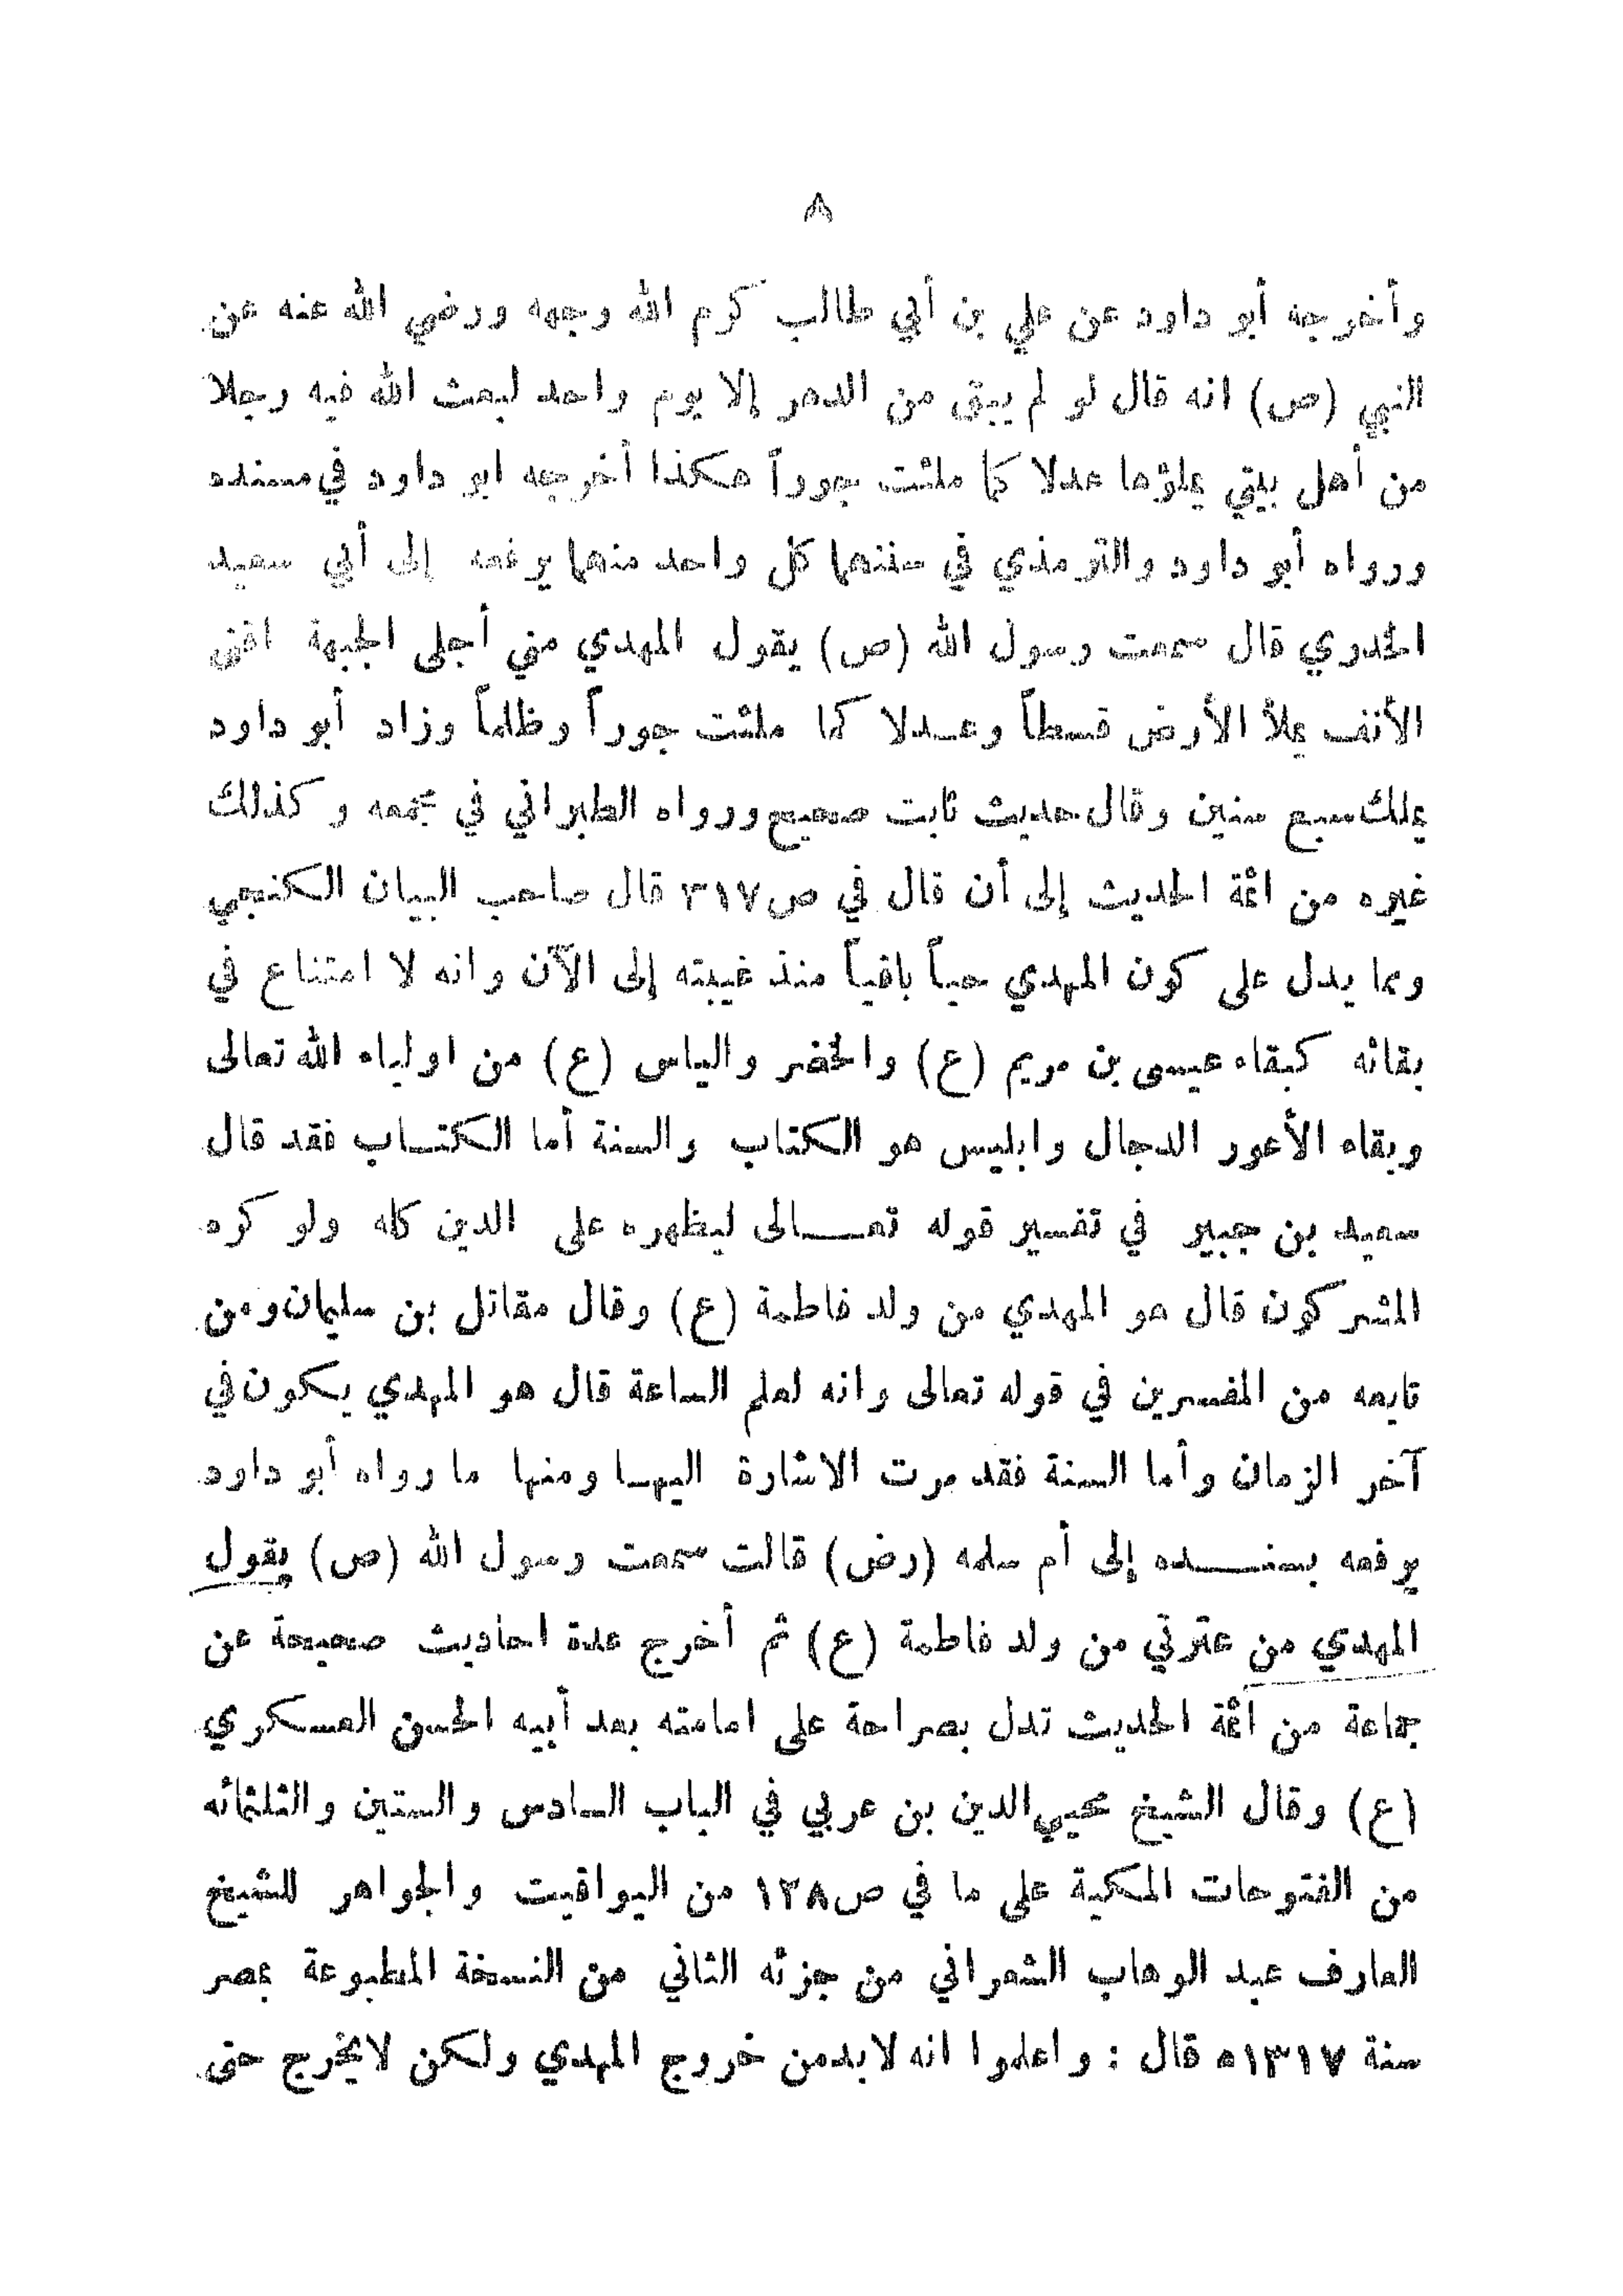 ٨
وأخرجه أبو داود عن علي بن أبي طالب كرم الله وجهه ورضي الله عنه عن
النبي (ص) انه قال لو لم يبق من الدهر إلا يوم واحد لبعث الله فيه رجلا
من أهل بيتي يملؤها عدلا كما ملئت جوراً هكذا أخرجه ابو داود في مسنده
ورواه أبو داود والترمذي في سننهما كل واحد منهما يرفعه إلى أبي سعيد
الخدري قال سمعت رسول الله (ص) يقول المهدي مني أجلى الجبهة اقنى
الأنف يملأ الأرض قسطاً وعدلا كما ملئت جوراً وظلماً وزاد أبو داود
يملك سبع سنين وقال حديث ثابت صحيح ورواه الطبراني في مجمعه وكذلك
غيره من ائمة الحديث إلى أن قال في ص٣١٧ قال صاحب البيان الكنجي
ومما يدل على كون المهدي حياً باقياً منذ غيبته إلى الآن وانه لا امتناع في
بقائه كبقاء عيسى بن مريم (ع) والخضر والياس (ع) من اولياء الله تعالى
وبقاء الأعور الدجال وابليس هو الكتاب والسنة أما الكتاب فقد قال
سعيد بن جبير في تفسير قوله تعالى ليظهره على الدين كله ولو كره
المشركون قال هو المهدي من ولد فاطمة (ع) وقال مقاتل بن سليمان ومن
تابعه من المفسرين في قوله تعالى وانه لعلم الساعة قال هو المهدي يكون في
آخر الزمان وأما السنة فقد مرت الاشارة اليها ومنها ما رواه أبو داود
يرفعه بسنده إلى أم سلمه (رض) قالت سمعت رسول الله (ص) يقول
المهدي من عترتي من ولد فاطمة (ع) ثم أخرج عدة احاديث صحيحة عن
جماعة من ائمة الحديث تدل بصراحة على امامته بعد أبيه الحسن العسكري
(ع) وقال الشيخ محيي الدين بن عربي في الباب السادس والستين والثلثمائه
من الفتوحات المكية على ما في ص١٢٨ من اليواقيت والجواهر للشيخ
العارف عبد الوهاب الشعراني من جزئه الثاني من النسخة المطبوعة بمصر
سنة ١٣١٧ه قال : واعلموا انه لابد من خروج المهدي ولكن لايخرج حتى